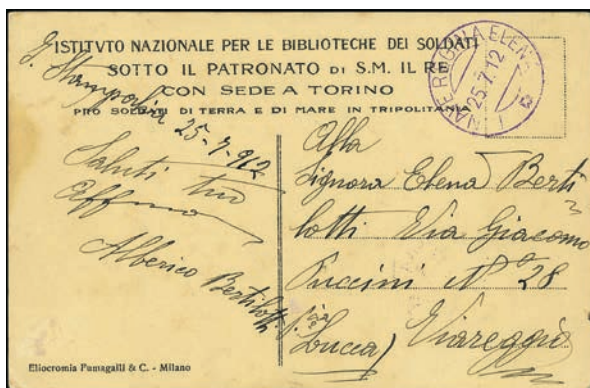 ISTITVTO NAZIONALE PER LE BIBLIOTECHE DEI SOLDATI
SOTTO IL PATRONATO DI S.M. IL RE
CON SEDE A TORINO
PRO SOLDATI DI TERRA E DI MARE IN TRIPOLITANIA
NAVE REGINA ELENA
25.7.12
Stampalia 25-7-912
Saluti tuo
Affmo
Alberico Bertilotti
Alla
Signora Elena Berti
lotti Via Giacomo
Puccini No 28
Viareggio
(Lucca)
Eliocromia Fumagalli & C. - Milano